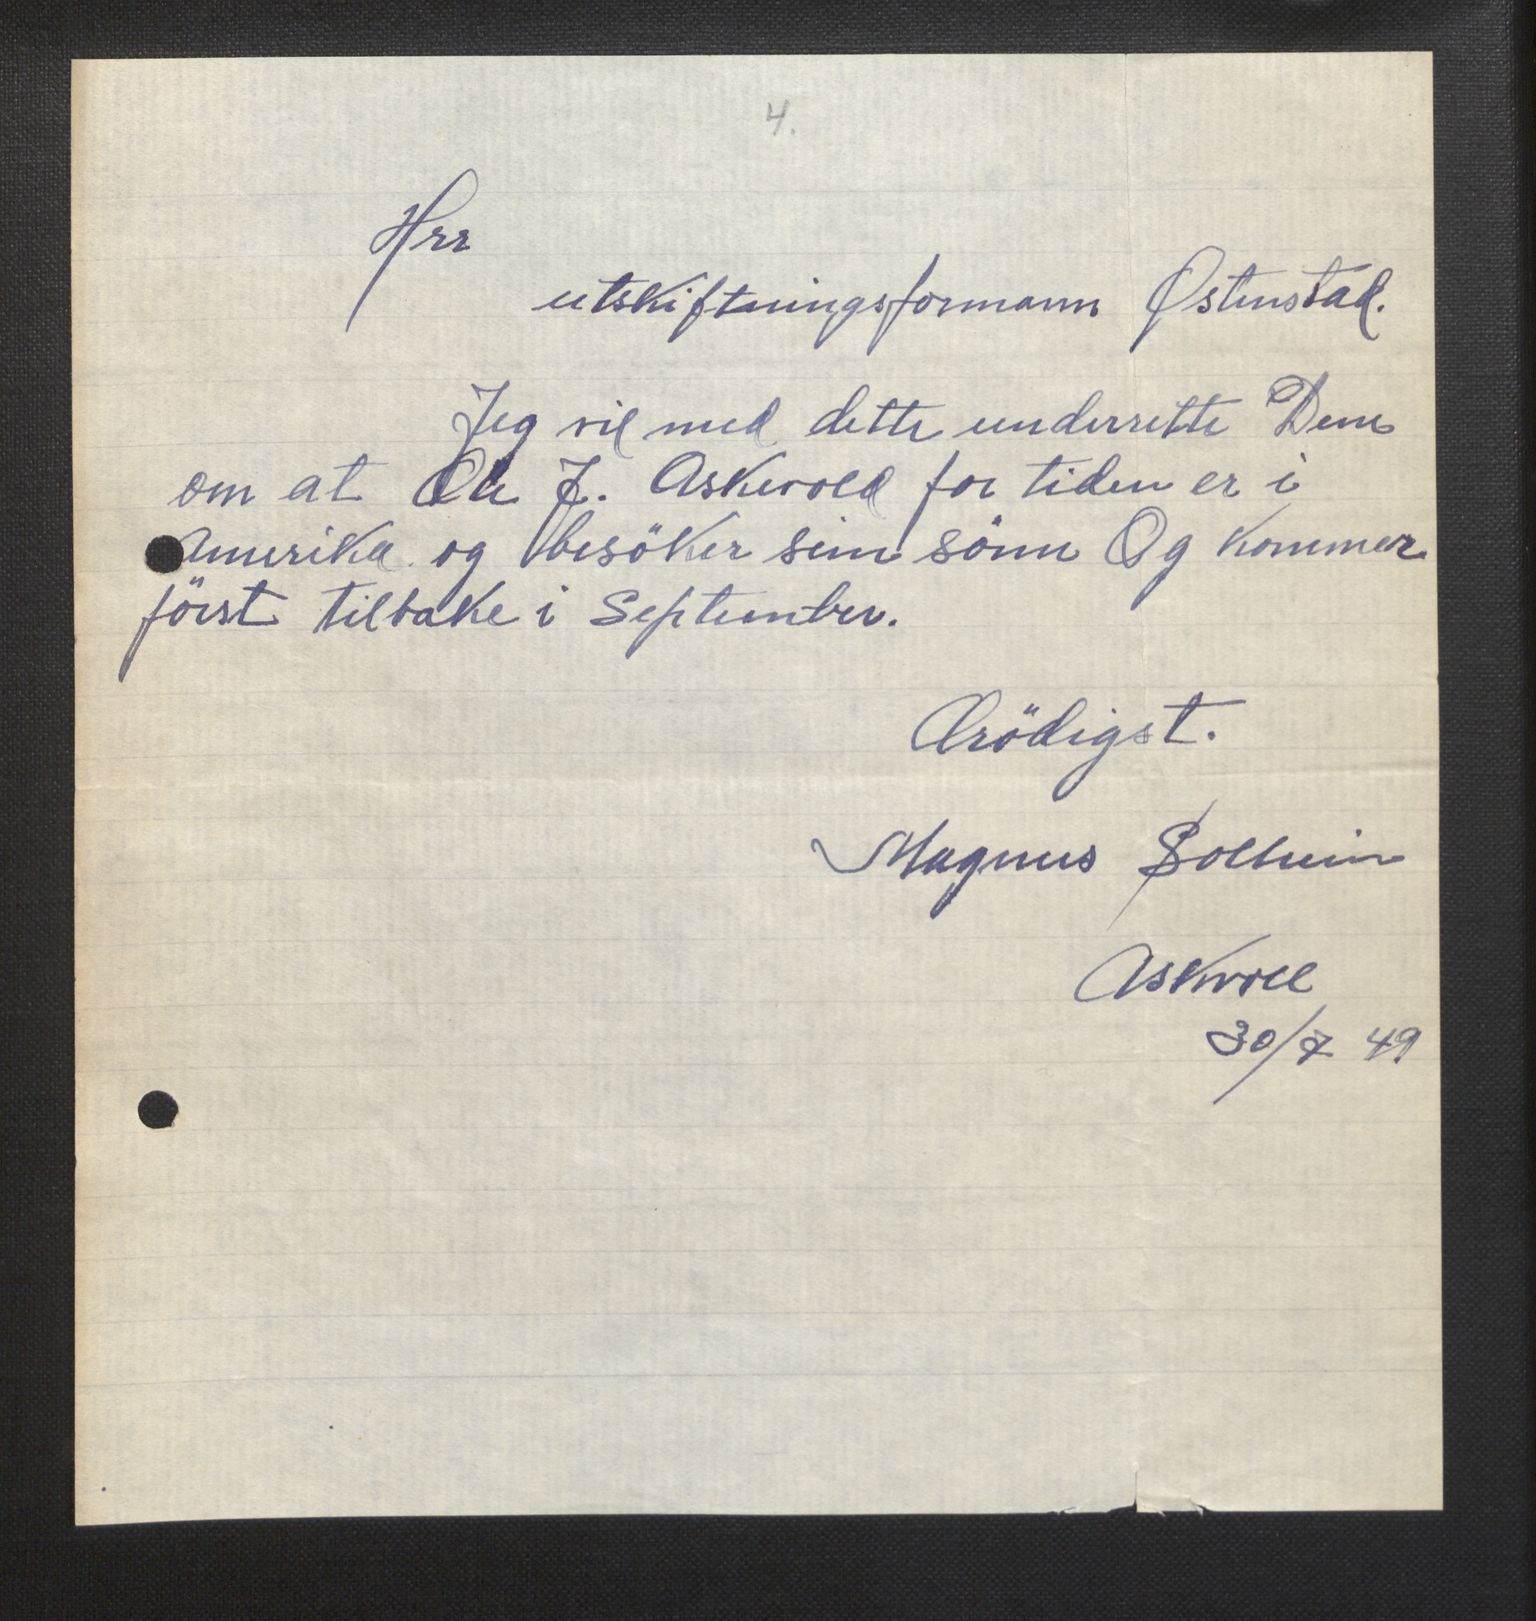 4.
Hrr
utskiftningsformann Østenstad.
Jeg vil med dette underrette Dem
om at Ole J. Askevold for tiden er i
Amerika og besöker sin sönn Og kommer
först tilbake i September.
Ærödigst.
Magnus Solheim
Askvoll
30/7 49